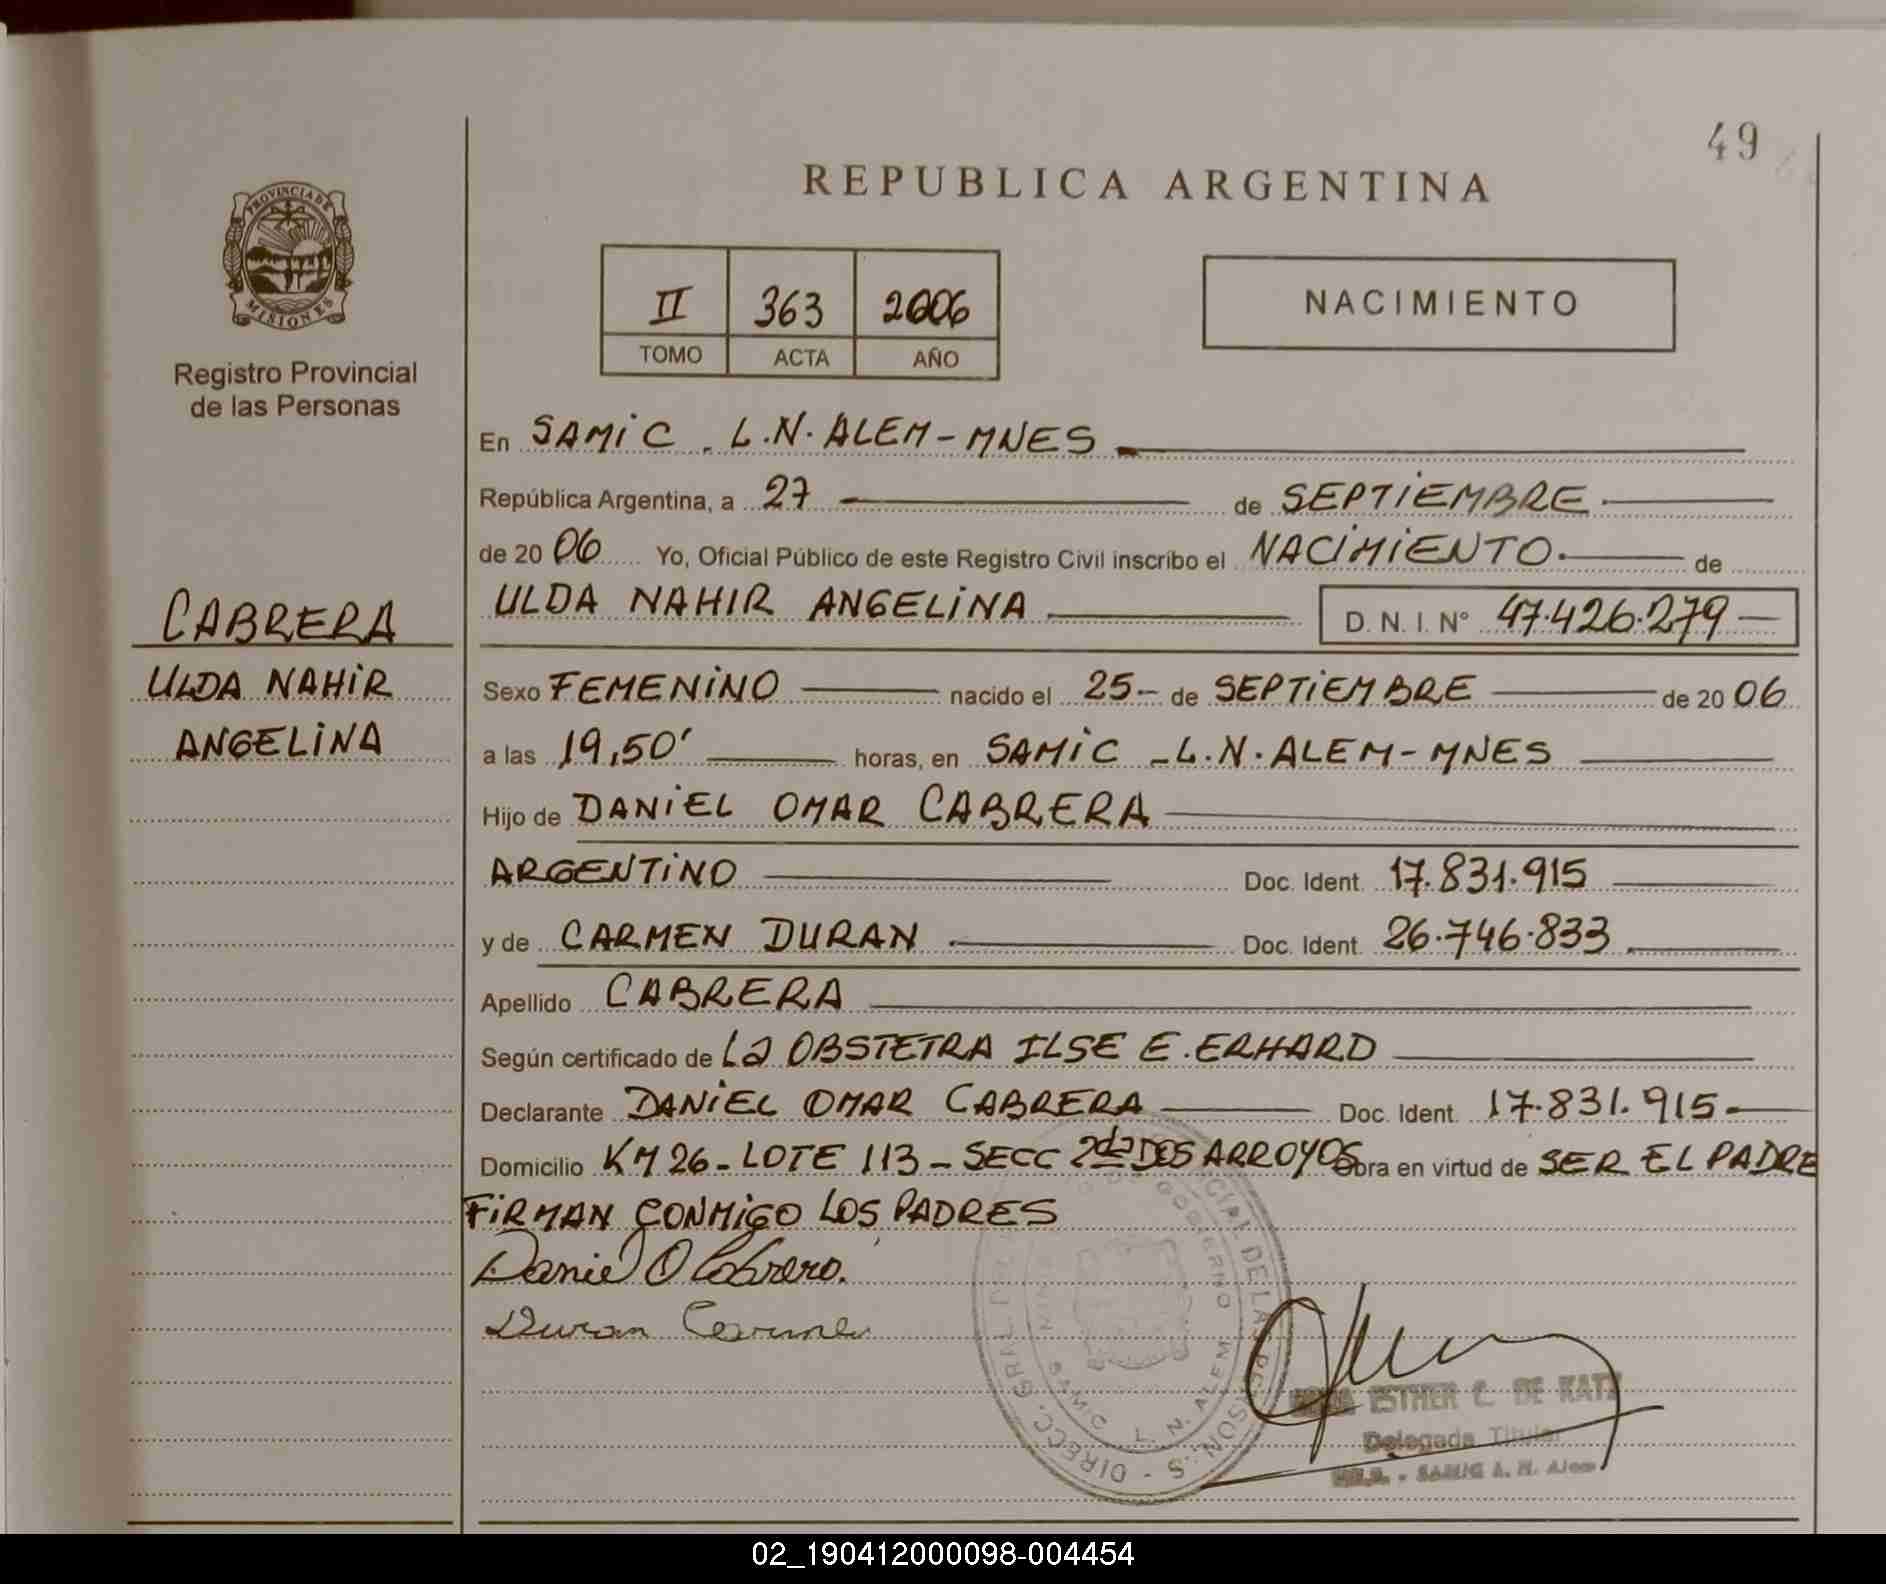 49
REPUBLICA ARGENTINA
PROVINCIA DE
MISIONES
Registro Provincial
de las Personas
II 363 2006
TOMO ACTA AÑO
NACIMIENTO
En SAMIC - L.N. ALEM - MNES
República Argentina, a 27 de SEPTIEMBRE
de 20 06 Yo, Oficial Público de este Registro Civil inscribo el NACIMIENTO de
ULDA NAHIR ANGELINA D. N. I. N° 47.426.279
CABRERA
ULDA NAHIR
ANGELINA
Sexo FEMENINO nacido el 25 - de SEPTIEMBRE de 20 06
a las 19,50' horas, en SAMIC - L.N. ALEM - MNES
Hijo de DANIEL OMAR CABRERA
ARGENTINO Doc. Ident. 17.831.915
y de CARMEN DURAN Doc. Ident. 26.746.833
Apellido CABRERA
Según certificado de La OBSTETRA ILSE E. ERHARD
Declarante DANIEL OMAR CABRERA Doc. Ident. 17.831.915
Domicilio KM 26 - LOTE 113 - SECC 2da DOS ARROYOS Obra en virtud de SER EL PADRE
FIRMAN CONMIGO LOS PADRES
Daniel O Cabrera.
Duran Carmen
ESTHER C. DE KATZ
Delegada Titular
SAMIC L. N. Alem
02_190412000098-004454